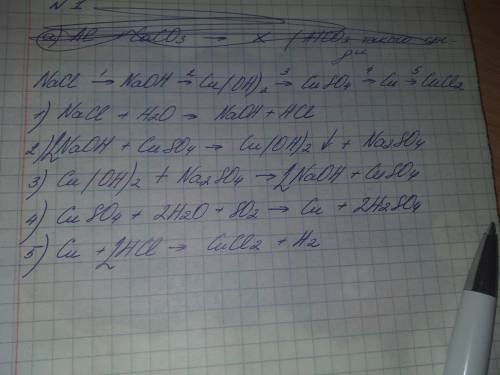 N 1
NaCl 1→ NaOH 2→ Cu(OH)2 3→ CuSO4 4→ Cu 5→ CuCl2
1) NaCl + H2O → NaOH + HCl
2) 2NaOH + CuSO4 → Cu(OH)2 ↓ + Na2SO4
3) Cu(OH)2 + Na2SO4 → 2NaOH + CuSO4
4) CuSO4 + 2H2O + SO2 → Cu + 2H2SO4
5) Cu + 2HCl → CuCl2 + H2